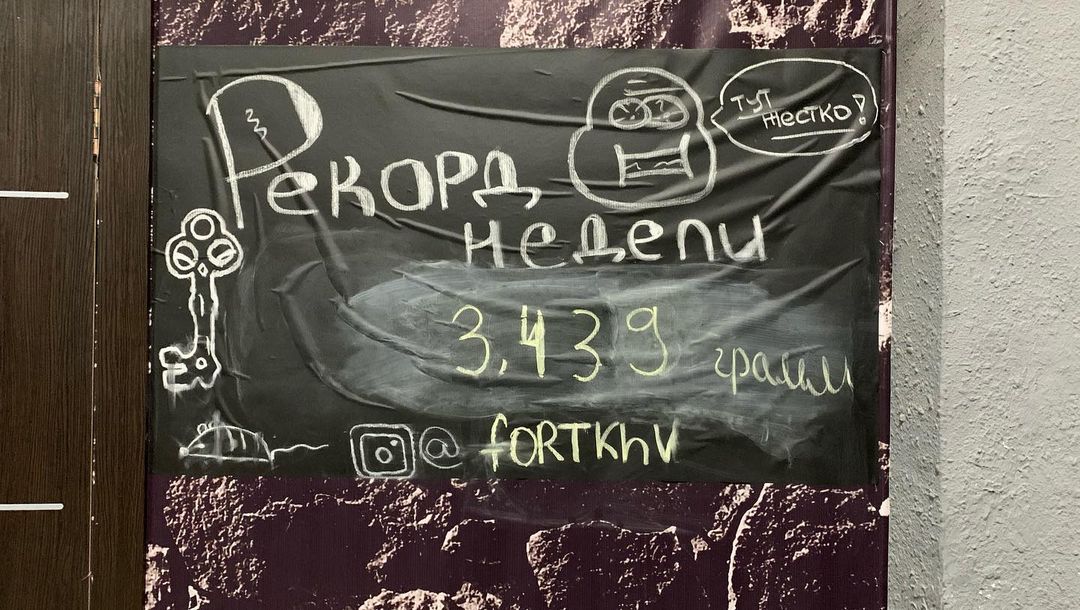 Рекорд
недели
тут
жестко!
3,439 грамм
@ fORTKhV